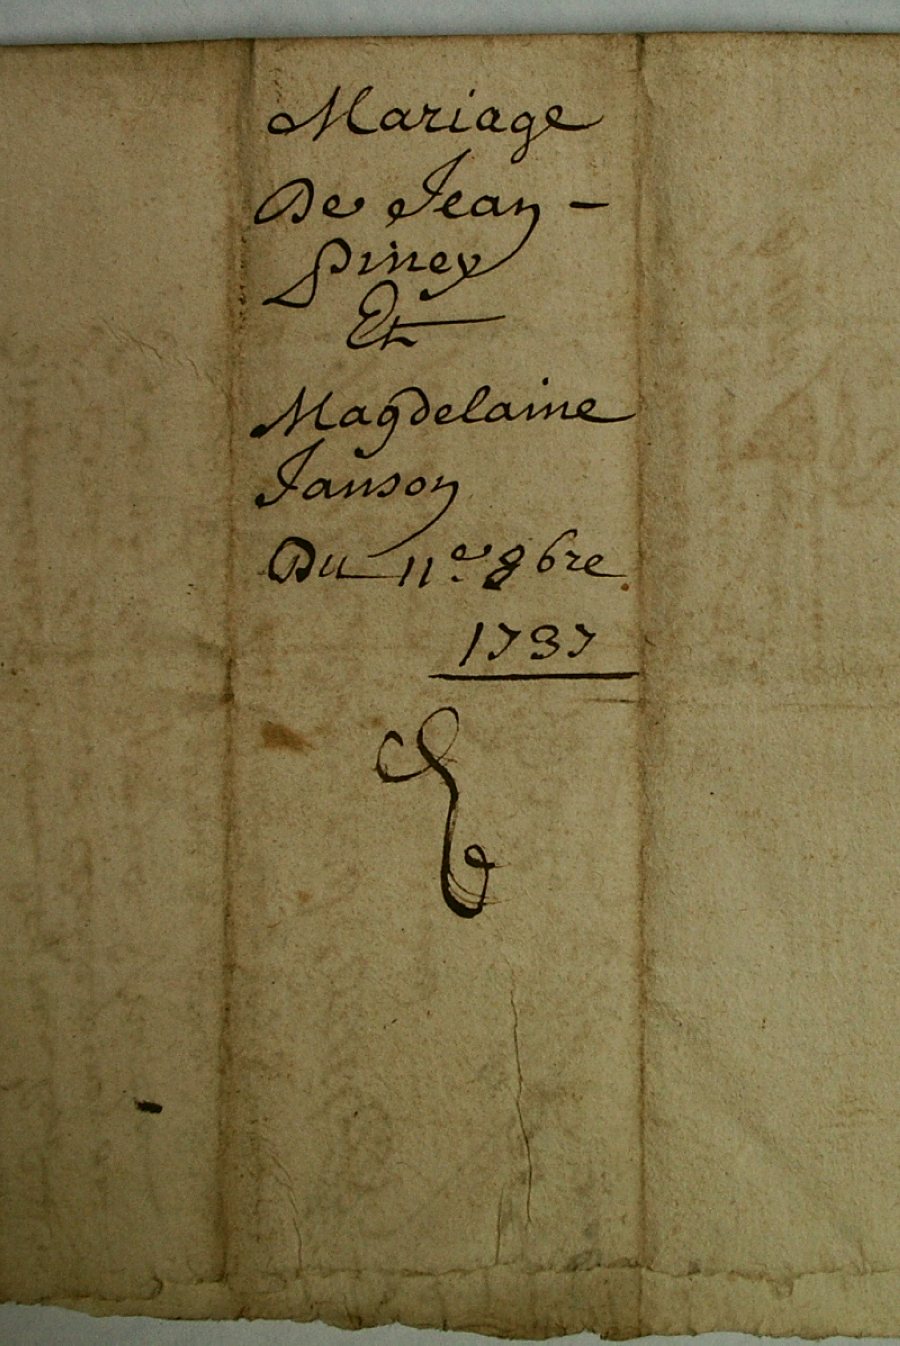 Mariage
De Jean -
piney
Et
Magdelaine
Janson
Du 11e. 8bre
1737